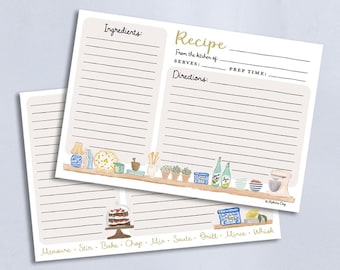 Ingredients:
Recipe
From the kitchen of
SERVES: PREP TIME:
Directions:
Measure • Stir • Bake • Chop • Mix • Sauté • Broil • Mince • Whisk